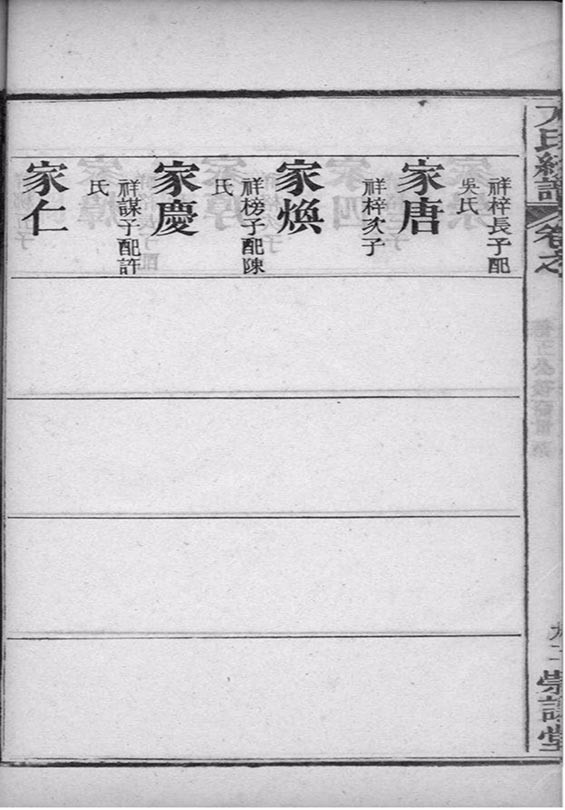 卷之
祥梓長子配
吳氏
家唐
祥梓次子
家煥
祥榜子配陳
氏
家慶
祥謀子配許
氏
家仁